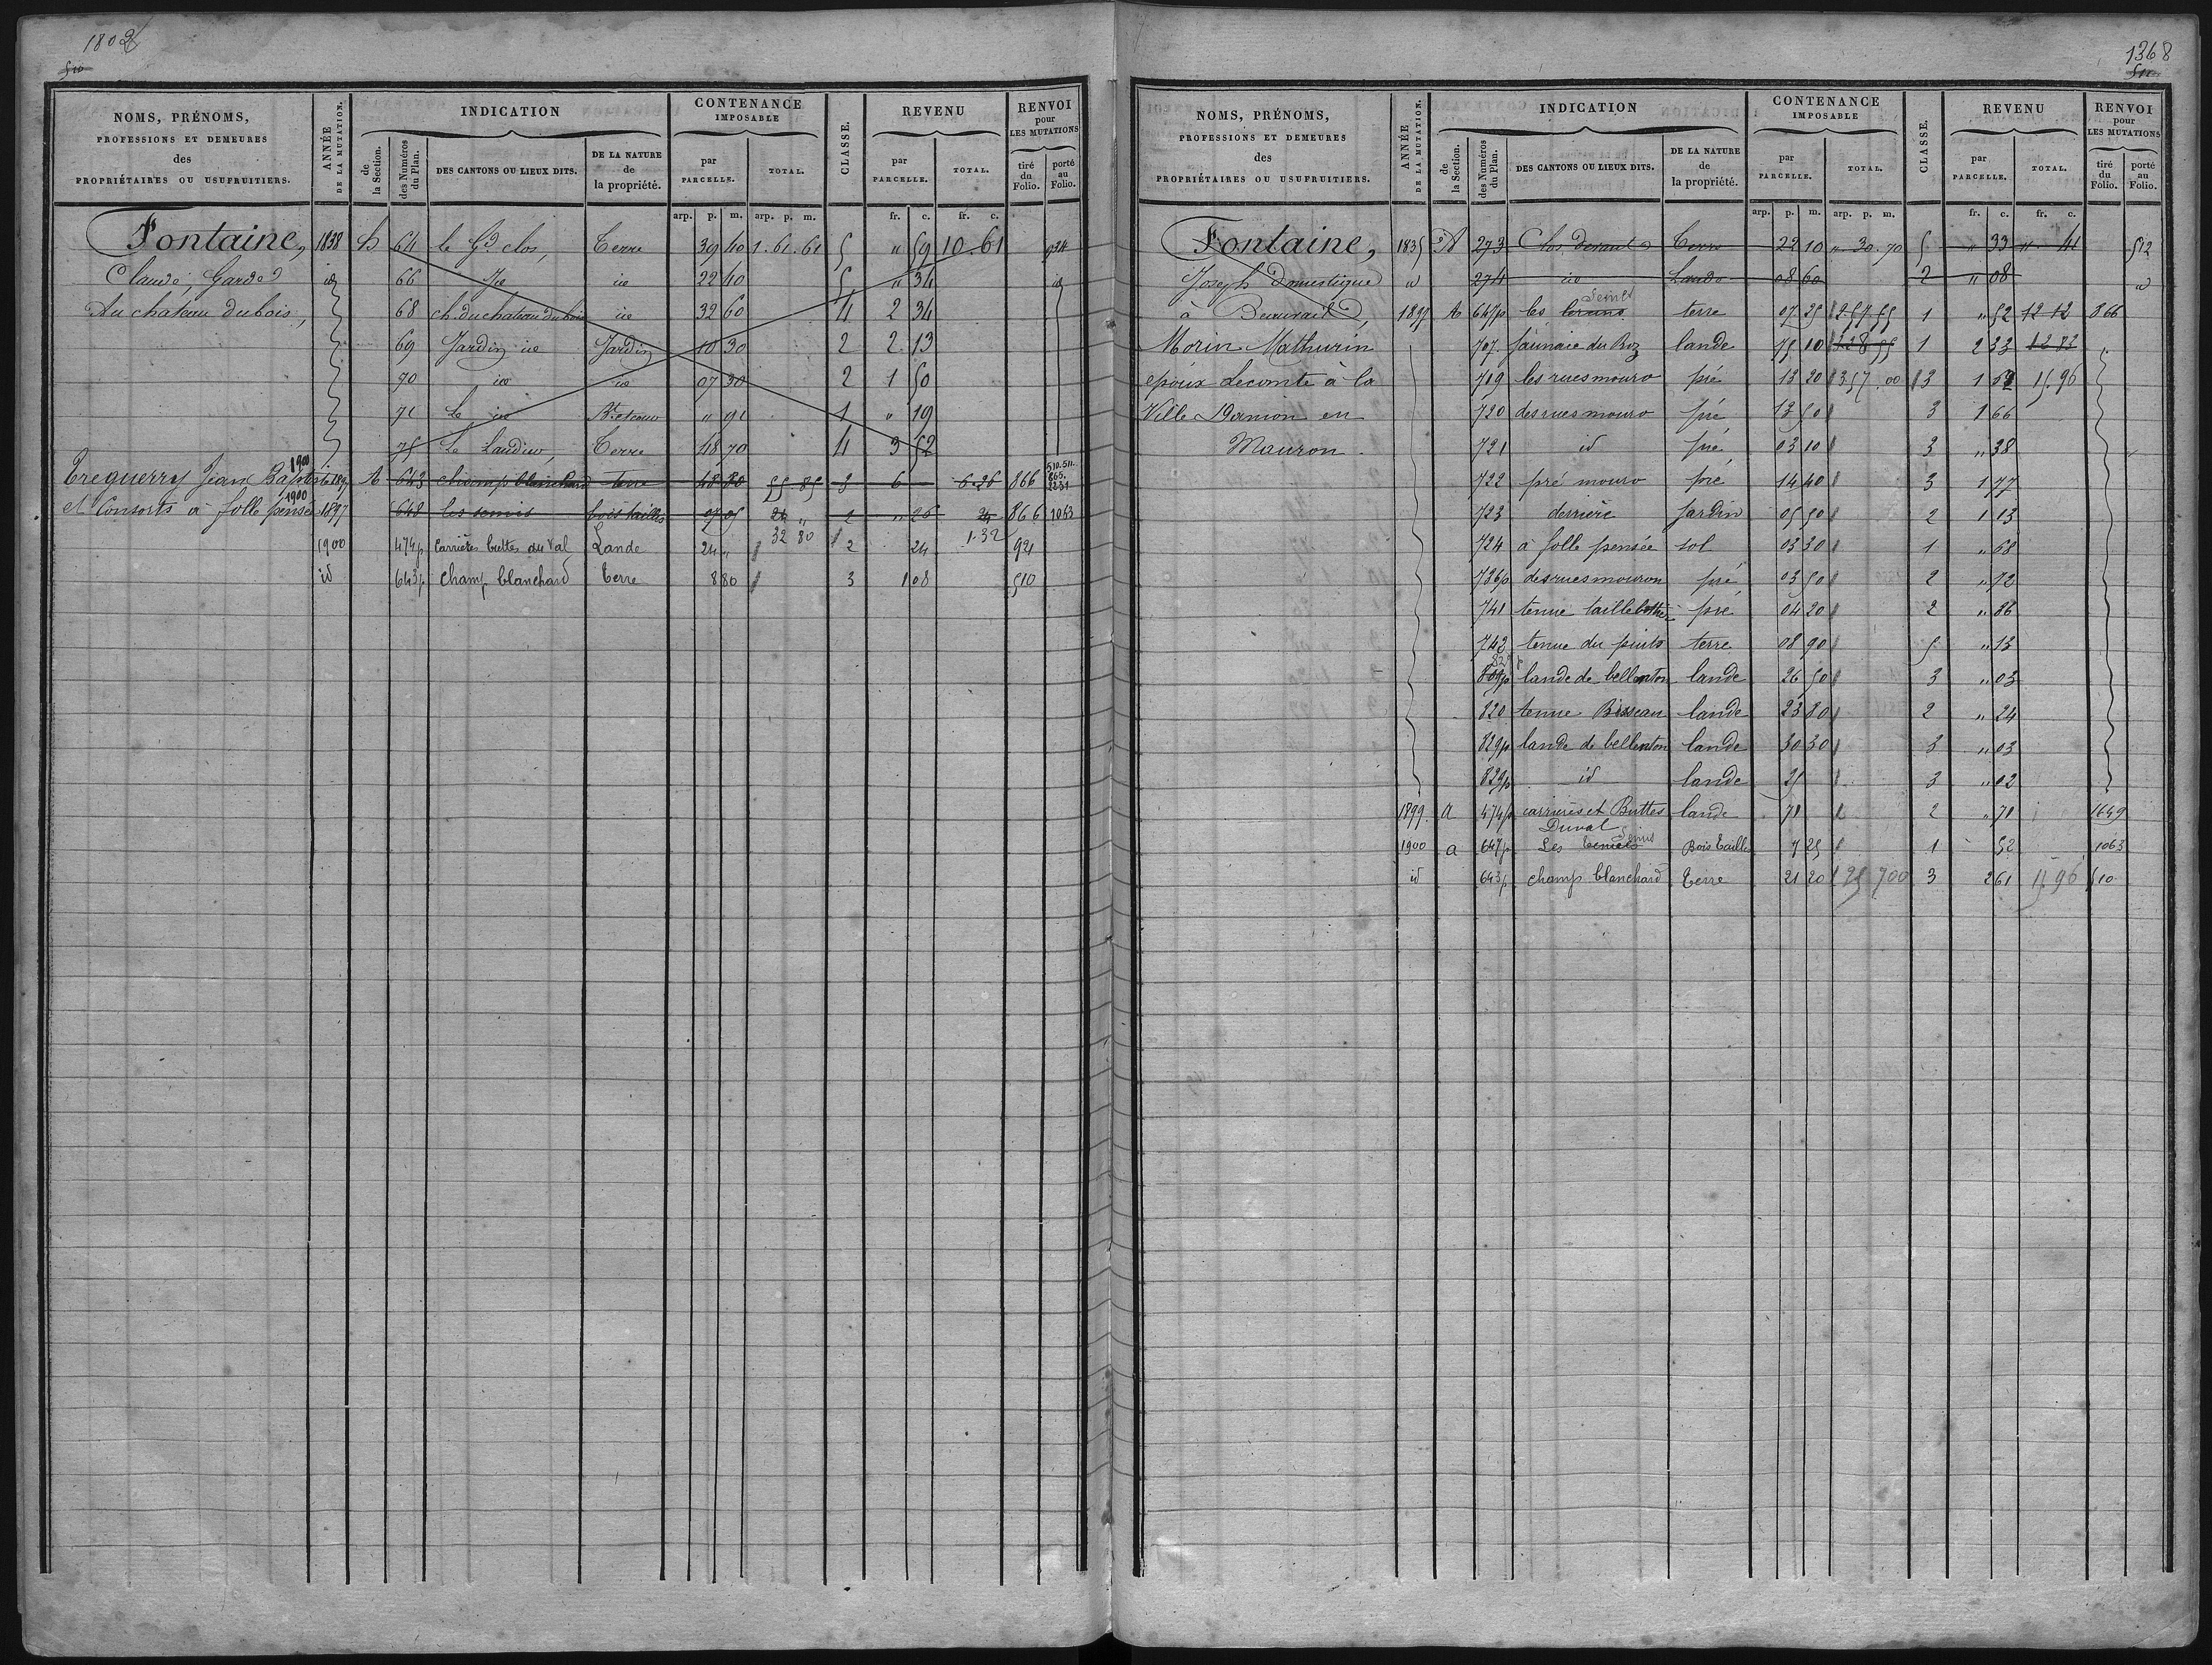 1802
510
NOMS, PRÉNOMS, PROFESSIONS ET DEMEURES des PROPRIÉTAIRES OU USUFRUITIERS. ANNÉE DE LA MUTATION. INDICATION de la Section. des Numéros du Plan. DES CANTONS OU LIEUX DITS. DE LA NATURE de la propriété. CONTENANCE IMPOSABLE par PARCELLE. TOTAL. CLASSE. REVENU par PARCELLE. TOTAL. RENVOI pour LES MUTATIONS tiré du Folio. porté au Folio.
arp. p. m. arp. p. m. fr. c. fr. c.
Fontaine, 1838 h 64 le Gd clos, Terre 39 40 1.61.61 5 " 59 10.61 924
Claude, Garde id 66 id 22 40 5 " 34 id
Au chateau du bois, 68 ch. du chateau du bois id 32 60 4 2 34
69 Jardin id Jardin 10 30 2 2 13
70 id id 07 30 2 1 50
71 Le id Bt et cour " 91 1 " 19
75 Le Landier, Terre 48 70 4 3 52
1900
Treguerry Jean Baptiste 1897 A 643 champ blanchard terre 48 80 55 85 3 6 6.26 866 510.511. 865. 1231
1900
et Consorts à folle pensée 1897 648 les semis bois taillis 07 05 24 " 2 " 26 24 866 1063
1900 474p Carrières buttes du Val Lande 24 " 32 80 2 24 1.32 921
id 643p Champ blanchard Terre 8 80 3 1 08 510
1368
511
NOMS, PRÉNOMS, PROFESSIONS ET DEMEURES des PROPRIÉTAIRES OU USUFRUITIERS. ANNÉE DE LA MUTATION. INDICATION de la Section. des Numéros du Plan. DES CANTONS OU LIEUX DITS. DE LA NATURE de la propriété. CONTENANCE IMPOSABLE par PARCELLE. TOTAL. CLASSE. REVENU par PARCELLE. TOTAL. RENVOI pour LES MUTATIONS tiré du Folio. porté au Folio.
arp. p. m. arp. p. m. fr. c. fr. c.
Fontaine, 1835 A 273 Clos Terre 22 10 ". 30. 70 5 " 33 " 41 512
Joseph Domestique id 274 id Lande 08 60 2 " 08 id
à Beauvais, 1897 A 647p les semis terre 07 25 2 57 55 1 " 52 12 12 866
Morin Mathurin 707 lande 75 10 1 2 33 12 82
epoux Lecomte à la 719 les rues mouro pré 13 20 3 57 00 3 1 62 15.96
Ville Damion en 720 des rues mouro pré 13 50 3 1 66
Mauron. 721 id pré 03 10 3 " 38
722 pré mouro pré 14 40 3 1 77
723 derrière Jardin 05 50 2 1 13
724 à folle pensée sol 03 30 1 " 68
736p des rues mouron pré 03 50 2 " 72
741 tenue pré 04 20 2 " 86
743 tenue du puits terre 08 90 5 " 13
829p lande de bellenton lande 26 50 3 " 03
820 tenue Bisseau lande 23 80 2 " 24
829p lande de bellenton lande 30 30 3 " 03
829p id lande 25 3 " 02
1899. a 474p carrieres et Buttes Duval lande 71 2 " 71 1649
1900 a 647p Les Semis Bois Taillis 7 25 1 52 1063
id 643p champ blanchard Terre 21 20 25 700 3 2 61 15 96 510